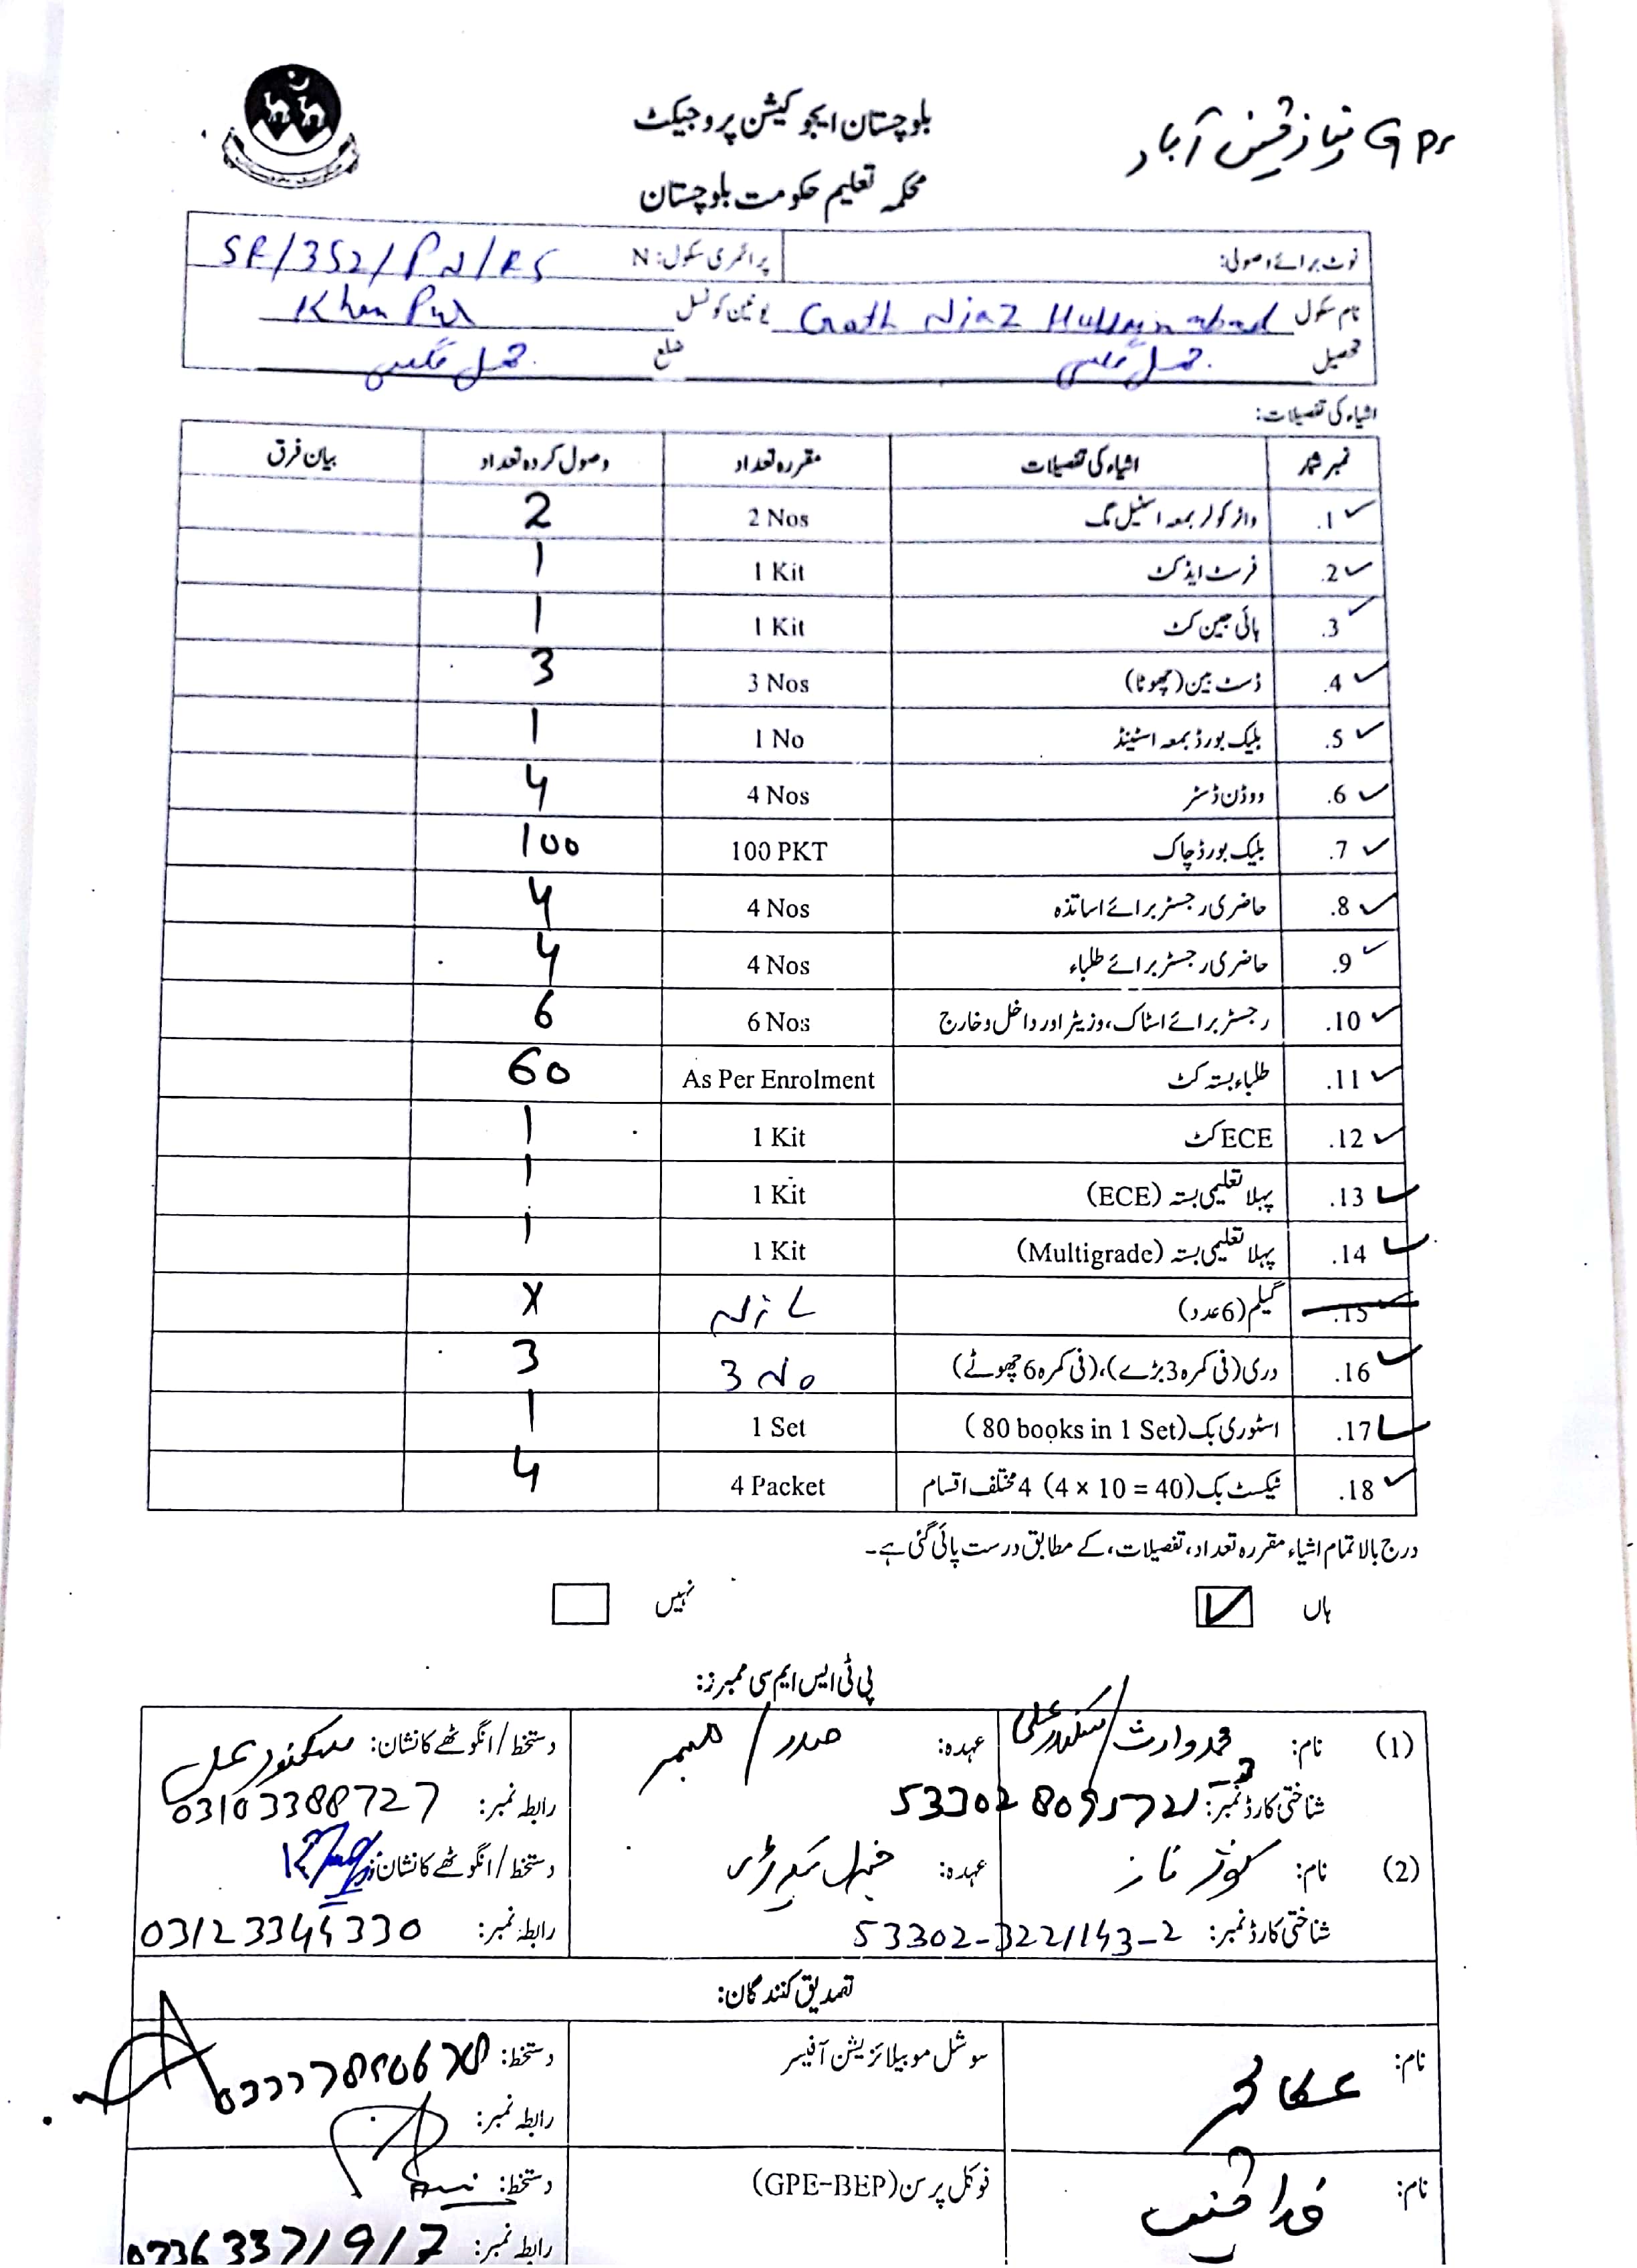 GPS نیاز حسین آباد
بلوچستان ایجوکیشن پروجیکٹ
محکمہ تعلیم حکومت بلوچستان
نوٹ برائے وصولی: پرائمری سکول: N
نام سکول Goth Niaz Hussainabad یونین کونسل Khan Pur
تحصیل جھل مگسی ضلع جھل مگسی
اشیاء کی تفصیلات:
نمبر شمار اشیاء کی تفصیلات مقررہ تعداد وصول کردہ تعداد بیان فرق
1. واٹر کولر بمعہ اسٹیل مگ 2 Nos 2
2. فرسٹ ایڈ کٹ 1 Kit 1
3. ہائی جین کٹ 1 Kit 1
4. ڈسٹ بین (چھوٹا) 3 Nos 3
5. بلیک بورڈ بمعہ اسٹینڈ 1 No 1
6. ووڈن ڈسٹر 4 Nos 4
7. بلیک بورڈ چاک 100 PKT 100
8. حاضری رجسٹر برائے اساتذہ 4 Nos 4
9. حاضری رجسٹر برائے طلباء 4 Nos 4
10. رجسٹر برائے اسٹاک، وزیٹر اور داخل و خارج 6 Nos 6
11. طلباء بستہ کٹ As Per Enrolment 60
12. ECE کٹ 1 Kit 1
13. پہلا تعلیمی بستہ (ECE) 1 Kit 1
14. پہلا تعلیمی بستہ (Multigrade) 1 Kit 1
15. گیلم (6 عدد) NiL X
16. دری (فی کمرہ 3 بڑے)، (فی کمرہ 6 چھوٹے) 3 No 3
17. اسٹوری بک (80 books in 1 Set) 1 Set 1
18. ٹیکسٹ بک (4 × 10 = 40) 4 مختلف اقسام 4 Packet 4
درج بالا تمام اشیاء مقررہ تعداد، تفصیلات، کے مطابق درست پائی گئی ہے۔
ہاں نہیں
پی ٹی ایس ایم سی ممبرز:
(1) نام: محمد وارث / سکندر علی عہدہ: صدر / ممبر دستخط/انگوٹھے کا نشان: سکندر علی
شناختی کارڈ نمبر: رابطہ نمبر: 03103388727
(2) نام: کوثر ناز عہدہ: جنرل سیکرٹری دستخط/انگوٹھے کا نشان:
شناختی کارڈ نمبر: 53302-3221143-2 رابطہ نمبر: 03123345330
تصدیق کنندگان:
نام: عطا محمد سوشل موبیلائزیشن آفیسر دستخط:
رابطہ نمبر:
نام: فدا حسین فوکل پرسن (GPE-BEP) دستخط:
رابطہ نمبر: 03363371917